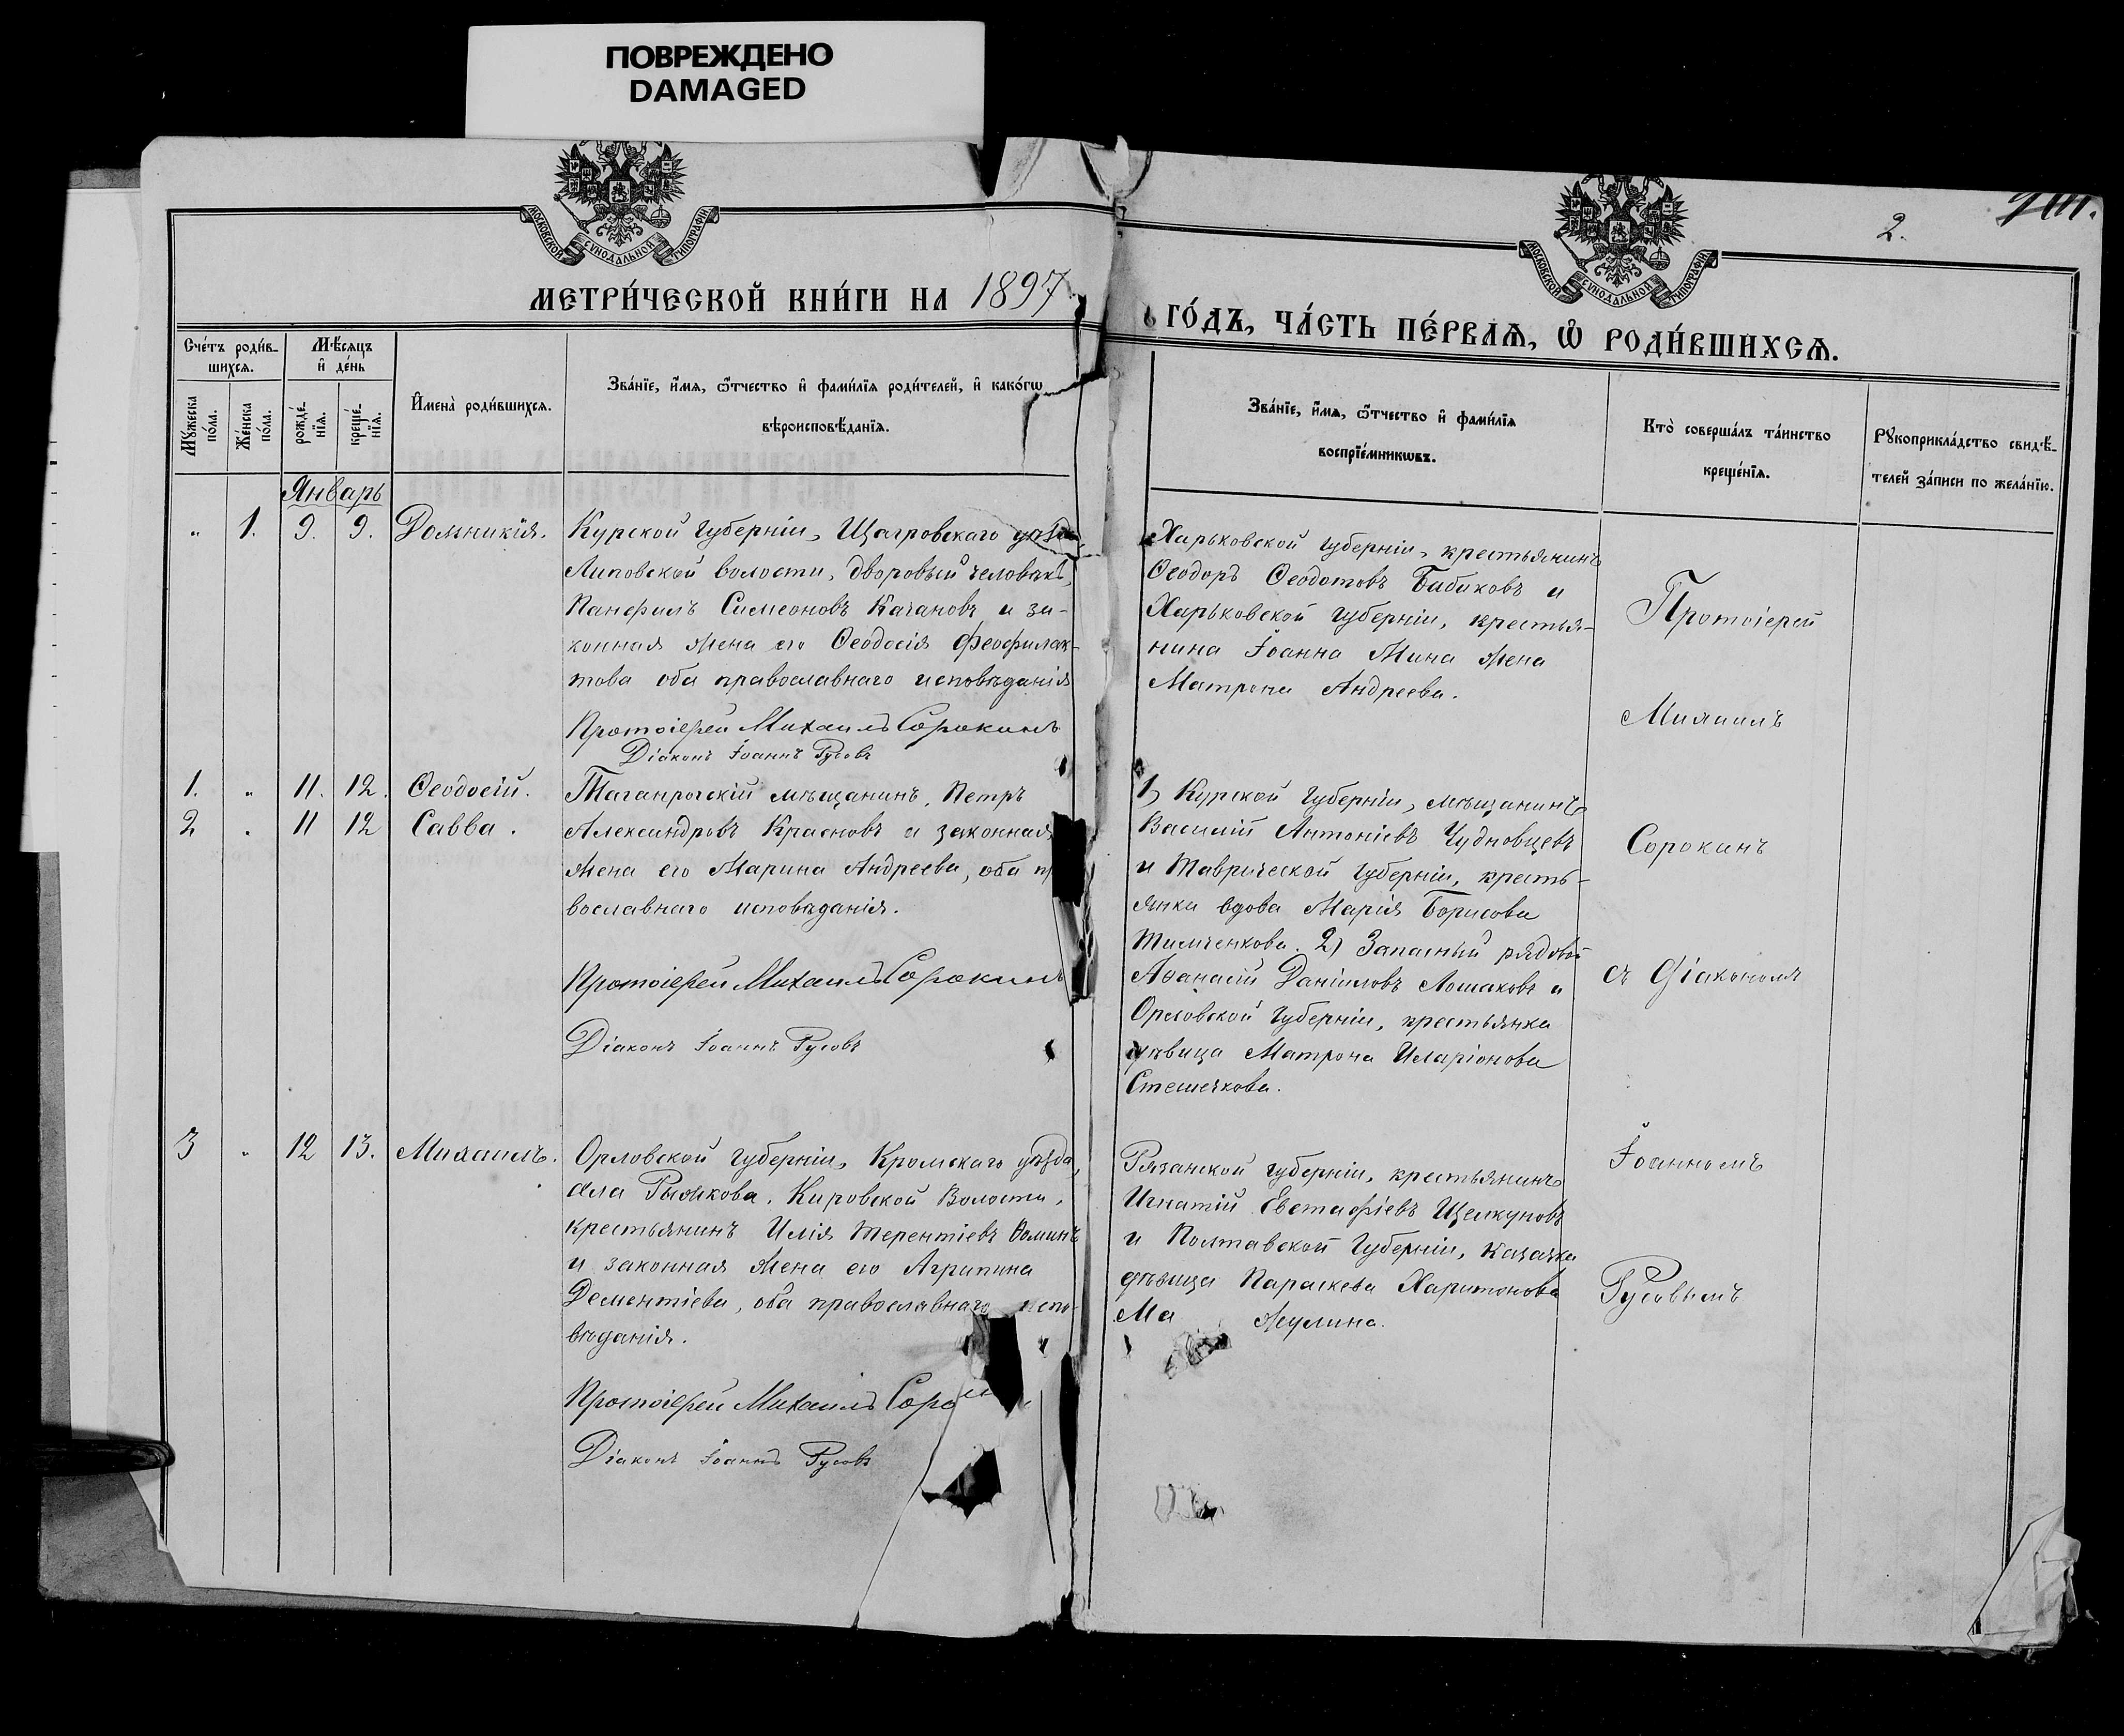 ПОВРЕЖДЕНО
DAMAGED
МОСКОВСКОЙ СѴНОДАЛЬНОЙ ТИПОГРАФІИ
МОСКОВСКОЙ СѴНОДАЛЬНОЙ ТИПОГРАФІИ
2.
МЕТРИ́ЧЕСКОЙ КНИ́ГИ НА 1897
ГО́ДЪ, ЧА́СТЬ ПЕ́РВАѦ, Ѡ҆ РОДИ́ВШИХСѦ.
Сче́тъ роди́в-
шихсѧ.
Мѣ́сѧцъ
и҆ де́нь
Мꙋ́жеска
по́ла.
Же́нска
по́ла.
рожде́-
нїѧ.
креще́-
нїѧ.
И҆мена̀ роди́вшихсѧ.
Зва́нїе, и҆́мѧ, ѻ҆́тчество и҆ фами́лїѧ роди́телей, и҆ како́гѡ
вѣроисповѣ́данїѧ.
Зва́нїе, и҆́мѧ, ѻ҆́тчество и҆ фами́лїѧ
воспрїе́мникѡвъ.
Кто̀ соверша́лъ та́инство
креще́нїѧ.
Рꙋкоприкла́дство свидѣ́-
телей за́писи по жела́нїю.
Январь
" 1. 9. 9. Домникія.
Курской губерніи, Щигровскаго уѣзда
Липовской волости, дворовый человѣкъ,
Панфилъ Симеоновъ Качановъ и за-
конная жена его Ѳеодосія Феофилак-
това оба православнаго исповѣданія
Протоіерей Михаилъ Сорокинъ
Діаконъ Іоаннъ Русовъ
Харьковской губерніи, крестьянинъ
Ѳеодоръ Ѳеодотовъ Бабиковъ и
Харьковской губерніи, крестья-
нина Іоанна Мина жена
Матрона Андреева.
1. " 11. 12. Ѳеодосій.
2 " 11 12 Савва.
Таганрогскій мѣщанинъ, Петръ
Александровъ Красновъ и законная
жена его Марина Андреева, оба пр
вославнаго исповѣданія.
Протоіерей Михаилъ Сорокинъ
Діаконъ Іоаннъ Русовъ
1) Курской губерніи, мѣщанинъ
Василій Антоніевъ Чудновцевъ
и Таврической губерніи, кресть-
янка вдова Марія Борисова
Тимченкова. 2) Запасный рядовой
Аѳанасій Даніиловъ Лошаковъ и
Орловской губерніи, крестьянка
дѣвица Матрона Иларіонова
Стешечкова.
3 " 12 13. Михаилъ.
Орловской губерніи, Кромскаго уѣзда,
села Рыжкова, Кировской Волости,
крестьянинъ Илія Терентіевъ Ѳоминъ
и законная жена его Агрипина
Дементіева, оба православнаго испо-
вѣданія.
Протоіерей Михаилъ Соро
Діаконъ Іоаннъ Русовъ
Рязанской губерніи, крестьянинъ
Игнатій Евстафіевъ Щелкуновъ
и Полтавской губерніи, казачка
дѣвица Параскева Харитонова
Ма
Протоіерей
Михаилъ
Сорокинъ
съ Діакономъ
Іоанномъ
Русовымъ